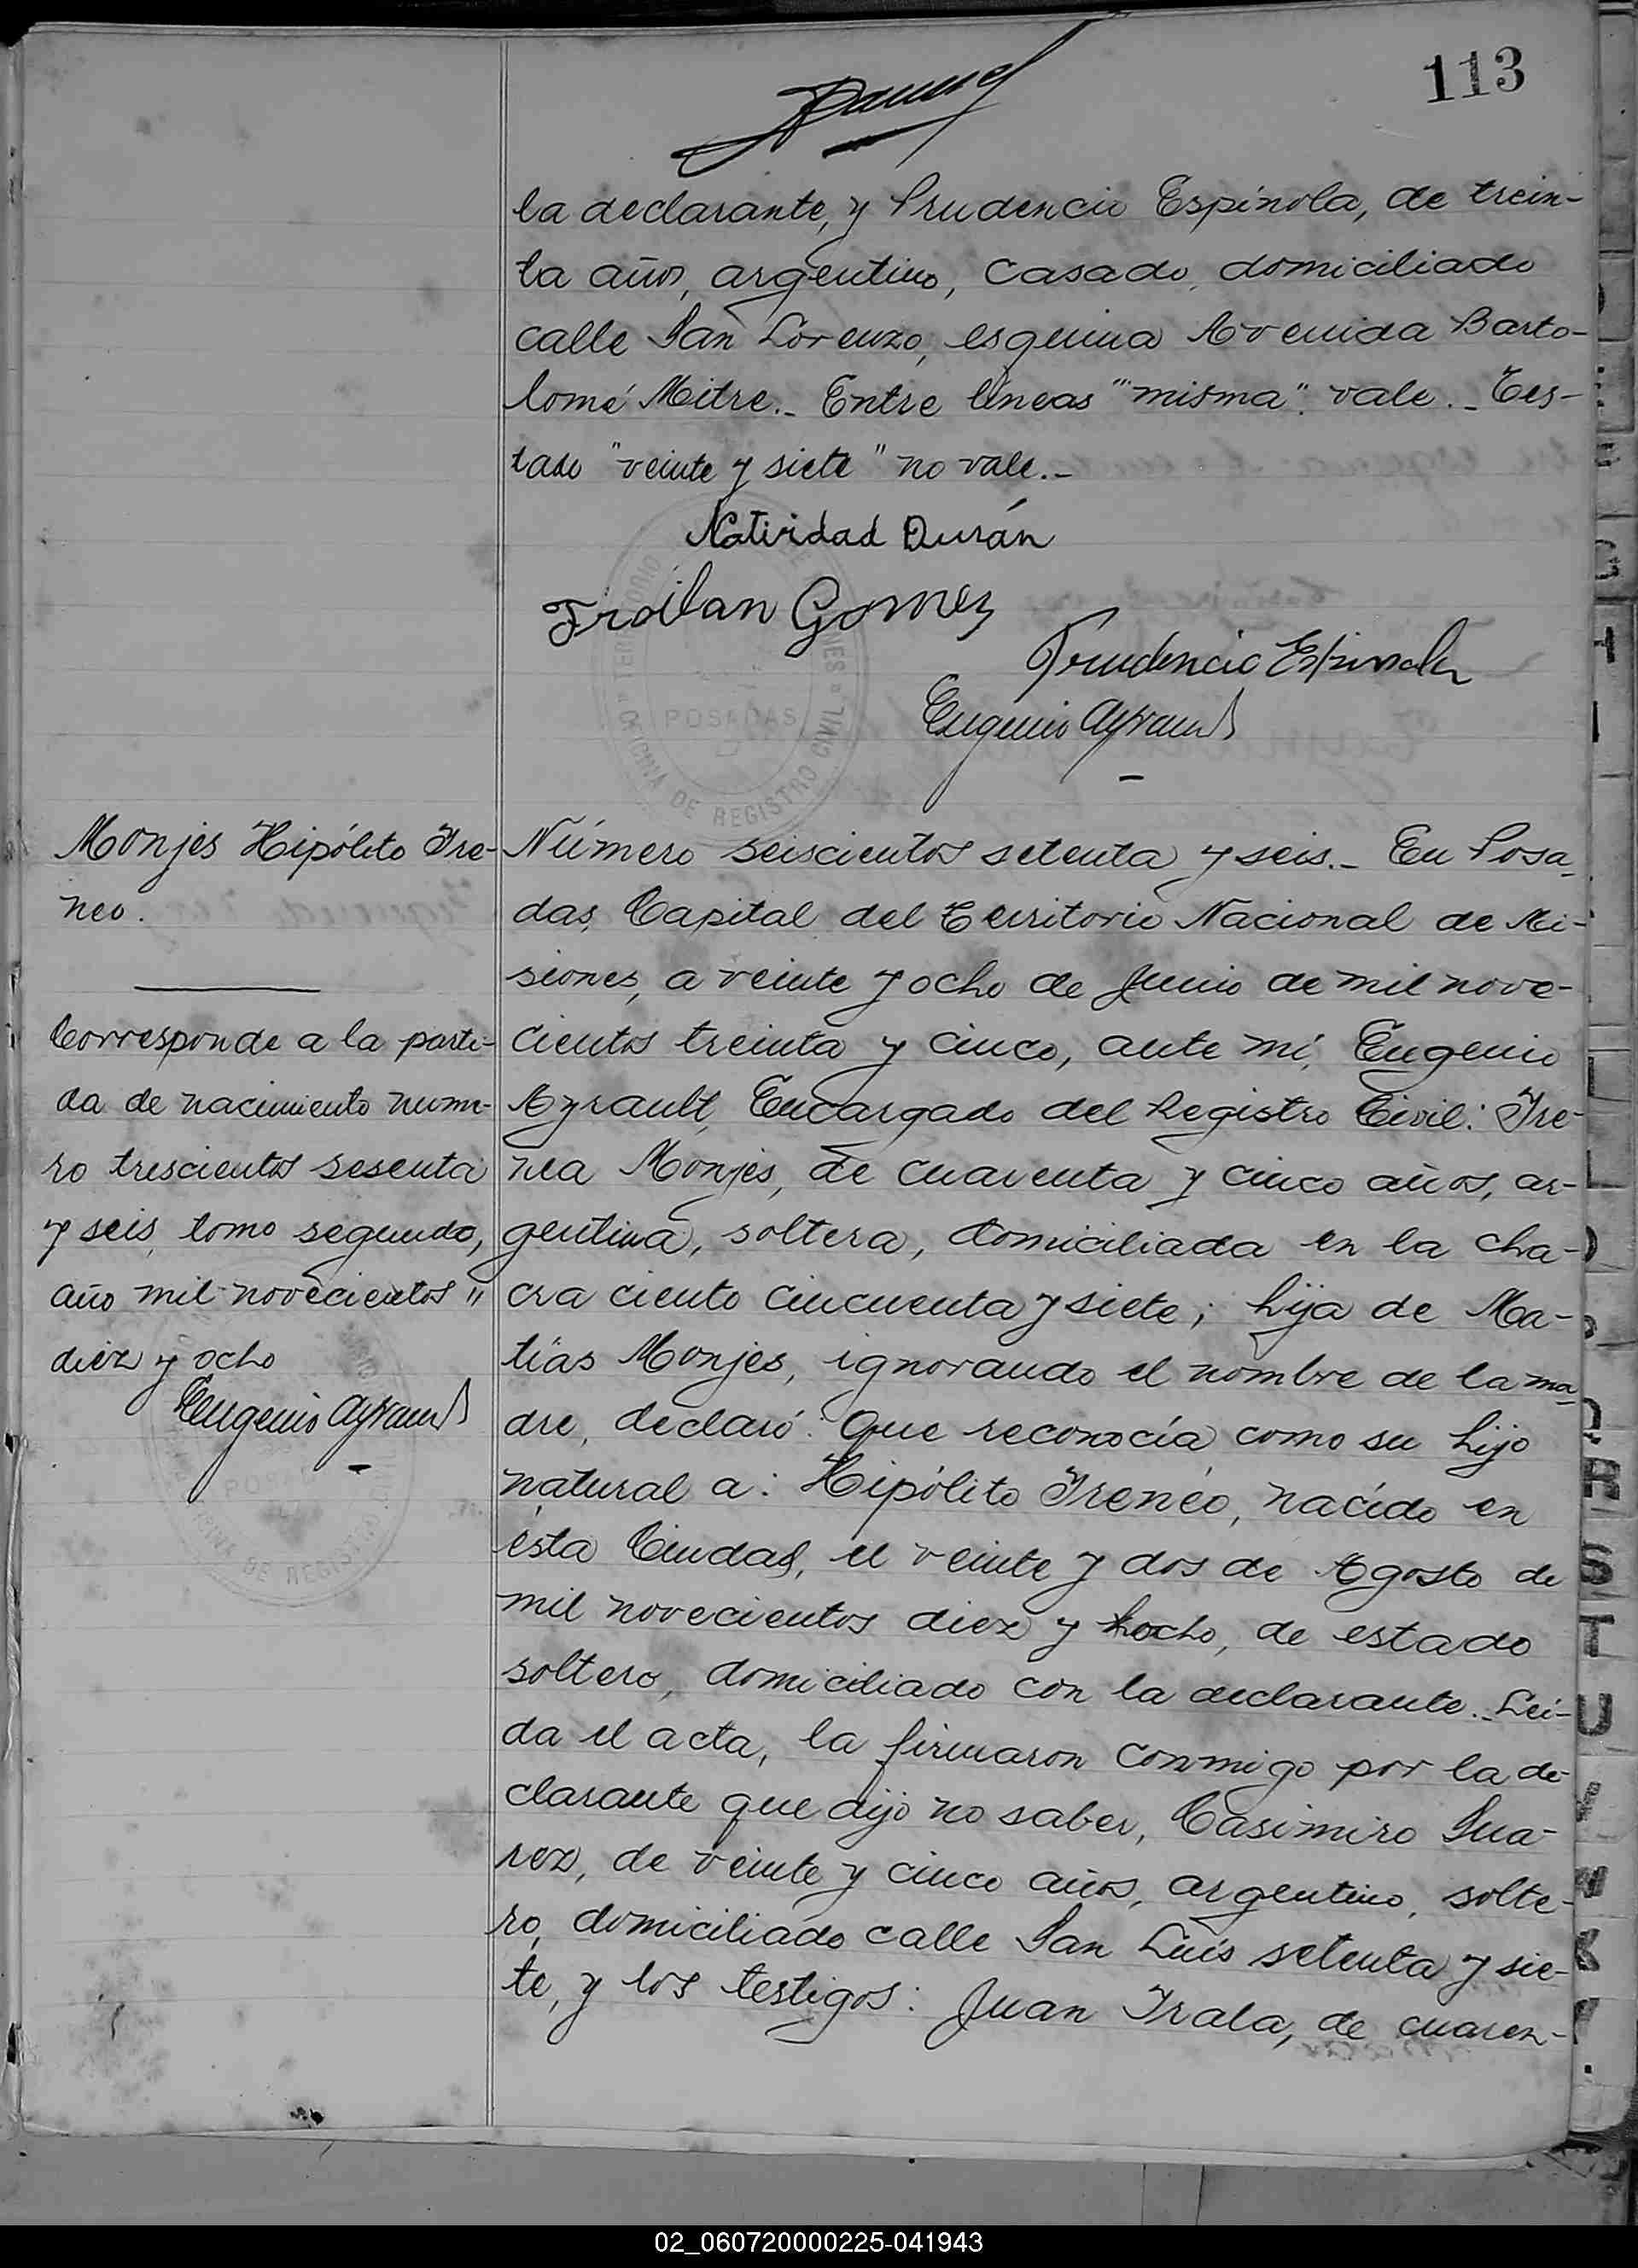 113
la declarante, y Prudencio Espínola, de trein-
ta años, argentino, casado, domiciliado
calle San Lorenzo, esquina Avenida Barto-
lomé Mitre.- Entre líneas "misma" vale.- Tes-
tado "veinte y siete" no vale.-
Natividad Durán
Froilan Gomez
Prudencio Espinola
Eugenio Ayrault
POSADAS
OFICINA DE REGISTRO CIVIL
Monjes Hipólito Ire-
neo.
Corresponde a la parti-
da de nacimiento núme-
ro trescientos sesenta
y seis, tomo segundo,
año mil novecientos "
diez y ocho
Eugenio Ayrault
Número seiscientos setenta y seis.- En Posa-
das, Capital del Territorio Nacional de Mi-
siones, a veinte y ocho de Junio de mil nove-
cientos treinta y cinco, ante mí, Eugenio
Ayrault, Encargado del Registro Civil: Ire-
nea Monjes, de cuarenta y cinco años, ar-
gentina, soltera, domiciliada en la cha-
cra ciento cincuenta y siete; hija de Ma-
tías Monjes, ignorando el nombre de la ma-
dre, declaró: Que reconocía como su hijo
natural a: Hipólito Ireneo, nacido en
ésta Ciudad, el veinte y dos de Agosto de
mil novecientos diez y hocho, de estado
soltero, domiciliado con la declarante.- Leí-
da el acta, la firmaron conmigo por la de-
clarante que dijo no saber, Casimiro Sua-
rez, de veinte y cinco años, argentino, solte-
ro, domiciliado calle San Luis setenta y sie-
te, y los testigos: Juan Irala, de cuaren-
02_060720000225-041943